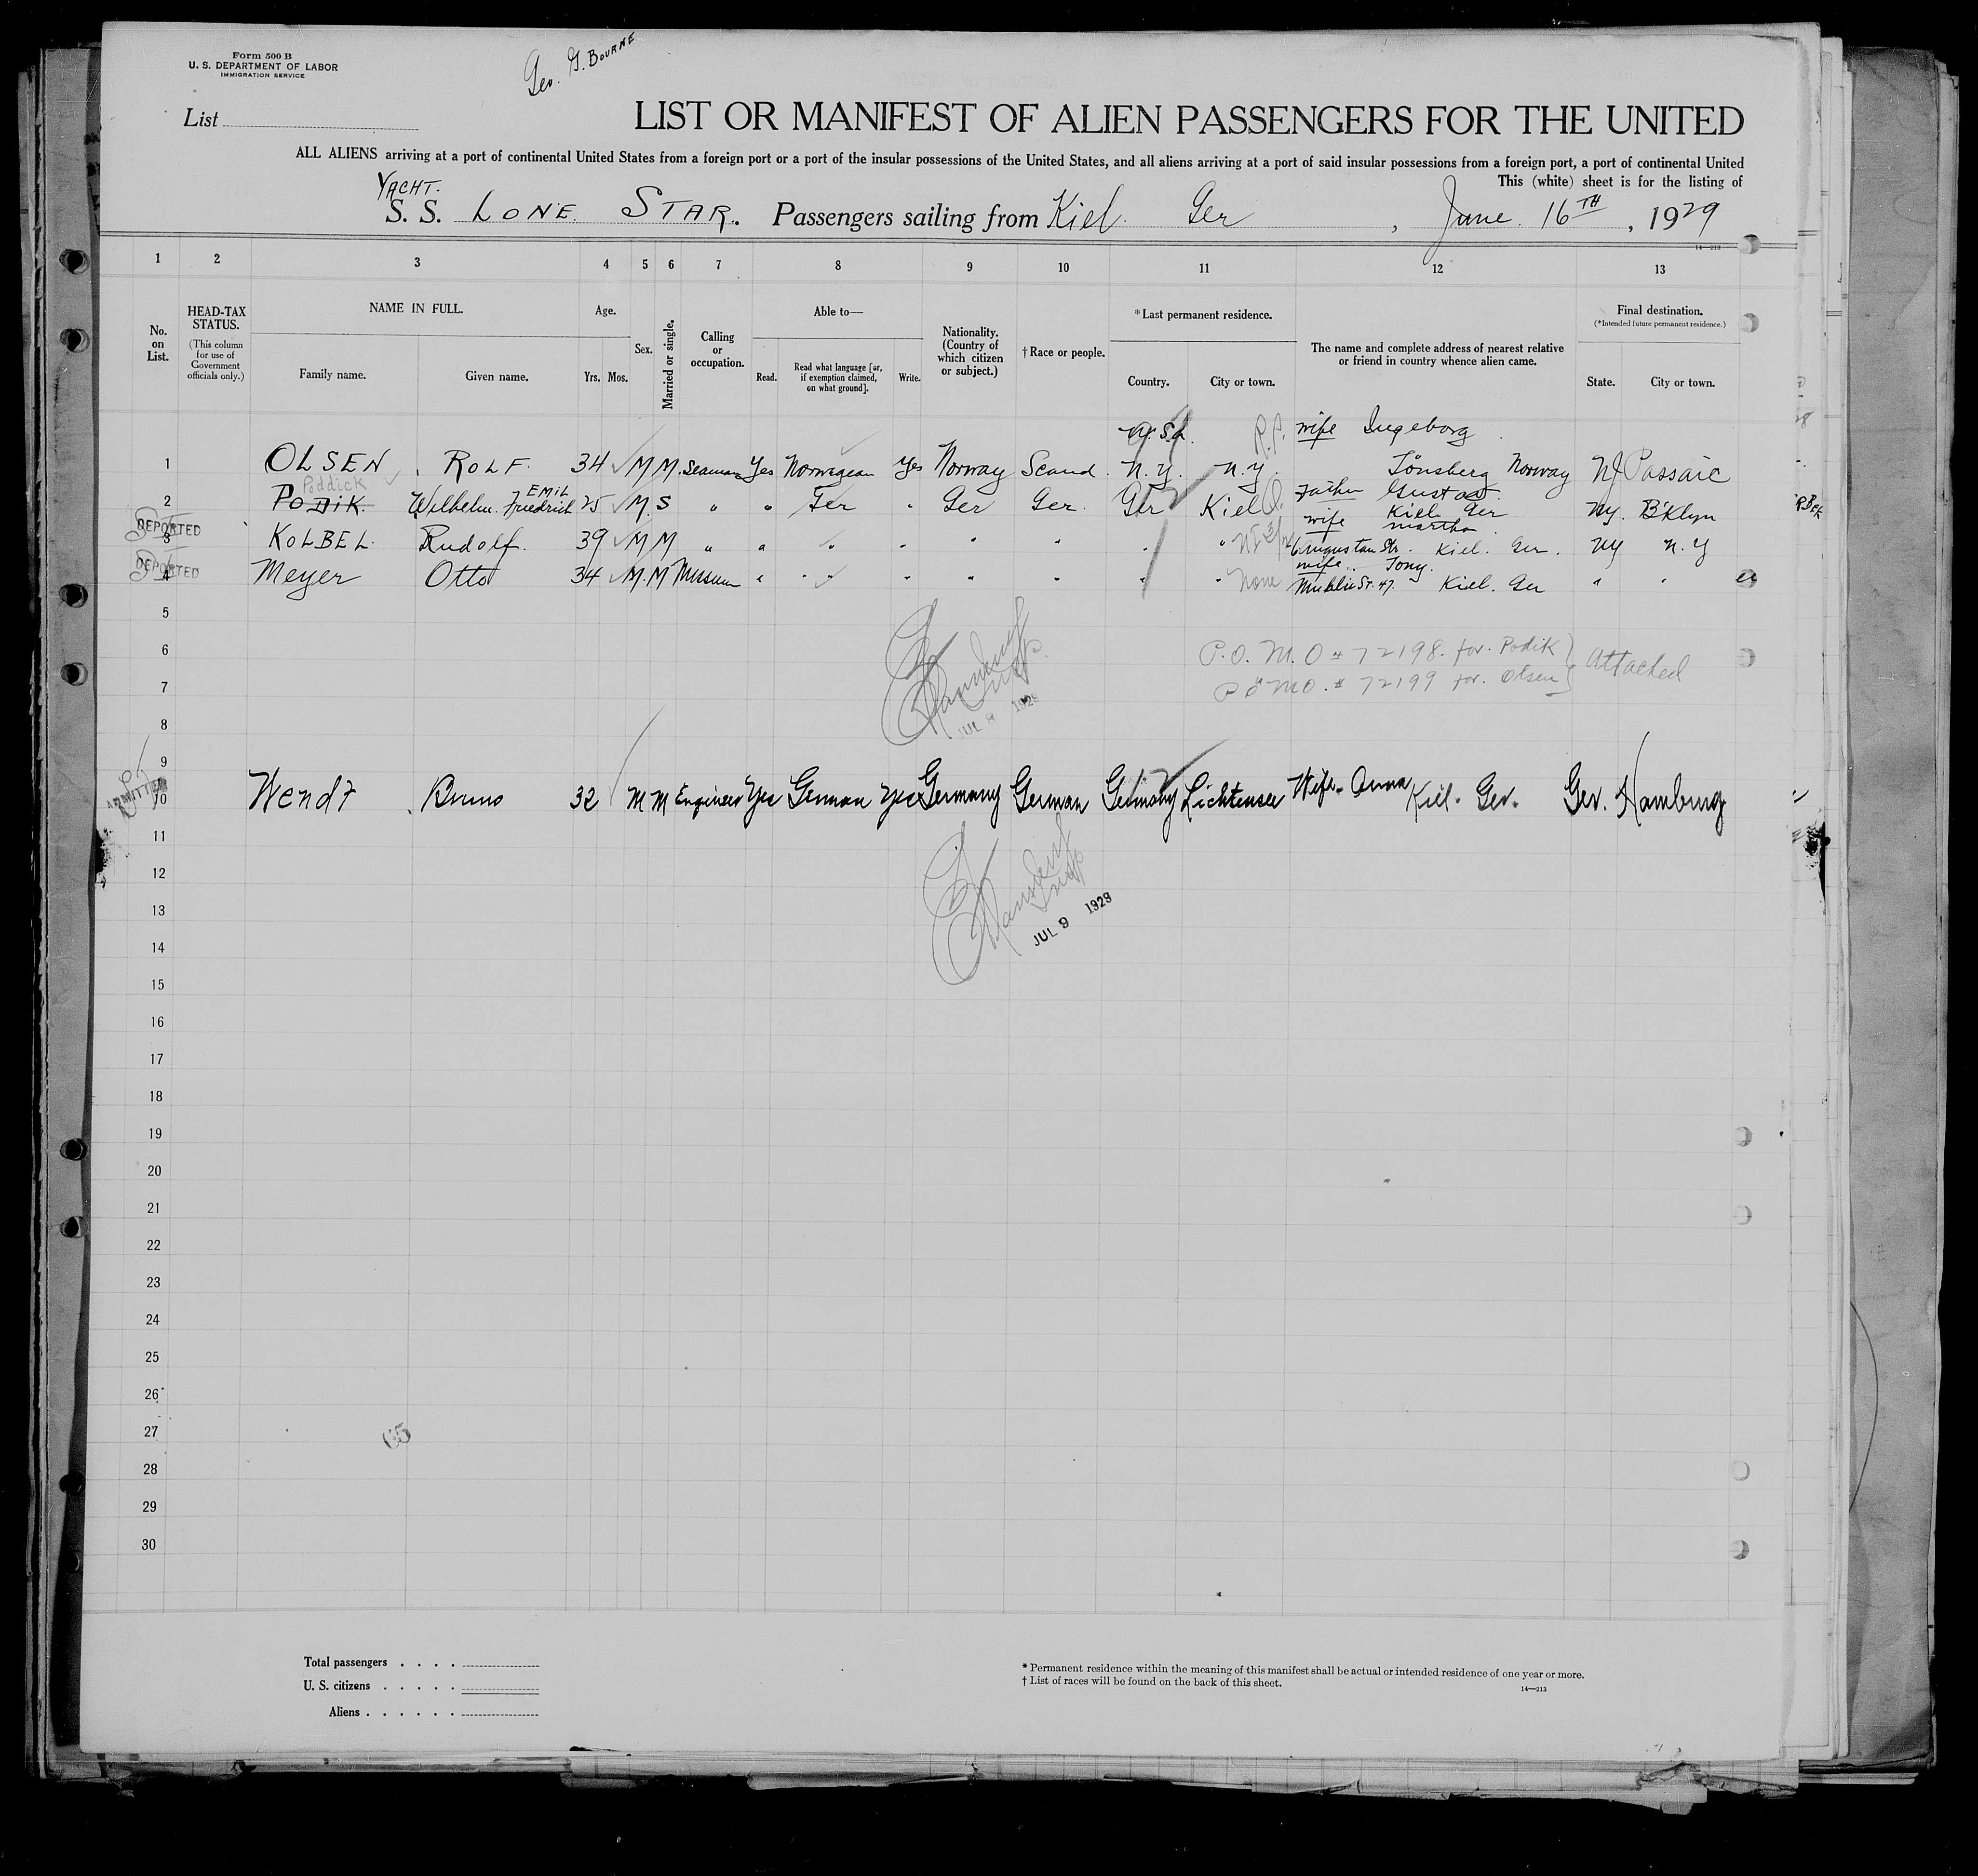 Form 500 B
U. S. DEPARTMENT OF LABOR
IMMIGRATION SERVICE
Geo. G. BOURNE
List
LIST OR MANIFEST OF ALIEN PASSENGERS FOR THE UNITED
ALL ALIENS arriving at a port of continental United States from a foreign port or a port of the insular possessions of the United States, and all aliens arriving at a port of said insular possessions from a foreign port, a port of continental United
This (white) sheet is for the listing of
YACHT.
S. S. LONE STAR. Passengers sailing from Kiel Ger, June 16TH, 1929
14—213
1 2 3 4 5 6 7 8 9 10 11 12 13
No. on List.
HEAD-TAX STATUS.
(This column for use of Government officials only.)
NAME IN FULL.
Family name. Given name.
Age.
Yrs. Mos.
Sex.
Married or single.
Calling or occupation.
Able to—
Read. Read what language [or, if exemption claimed, on what ground]. Write.
Nationality. (Country of which citizen or subject.)
† Race or people.
* Last permanent residence.
Country. City or town.
The name and complete address of nearest relative or friend in country whence alien came.
Final destination.
(*Intended future permanent residence.)
State. City or town.
U.S.A. R.P. wife Ingeborg
1 OLSEN ROLF 34 M M. Seaman Yes Norwegian Yes Norway Scand. N.Y. N.Y. Tönsberg Norway NJ Passaic
Poddick EMIL Father Gustav
2 PODIK Wilhelm Friedrich 25 M S " " Ger " Ger Ger. Ger Kiel Kiel Ger NY. B'Klyn
DEPORTED wife martha
3 KOLBEL Rudolf. 39 M M " " " " " " " " Augustan Str. Kiel. Ger. NY N.Y
DEPORTED wife Tony.
4 Meyer Otto 34 M. M " " " " " " " None 47. Kiel. Ger " "
5
6 P.O.M.O # 72198. for. Podik } Attached
7 P.O.M.O. # 72199 for. Olsen }
JUL 8 1929
8
9
ADMITTED
10 Wendt Bruno 32 M M Engineer Yes German Yes Germany German Germany Wife. Anna Kiel. Ger. Ger. Hamburg
11
12
13
JUL 9 1929
14
15
16
17
18
19
20
21
22
23
24
25
26
27
65
28
29
30
Total passengers . . . .
U. S. citizens . . . . .
Aliens . . . . . .
* Permanent residence within the meaning of this manifest shall be actual or intended residence of one year or more.
† List of races will be found on the back of this sheet.
14—213